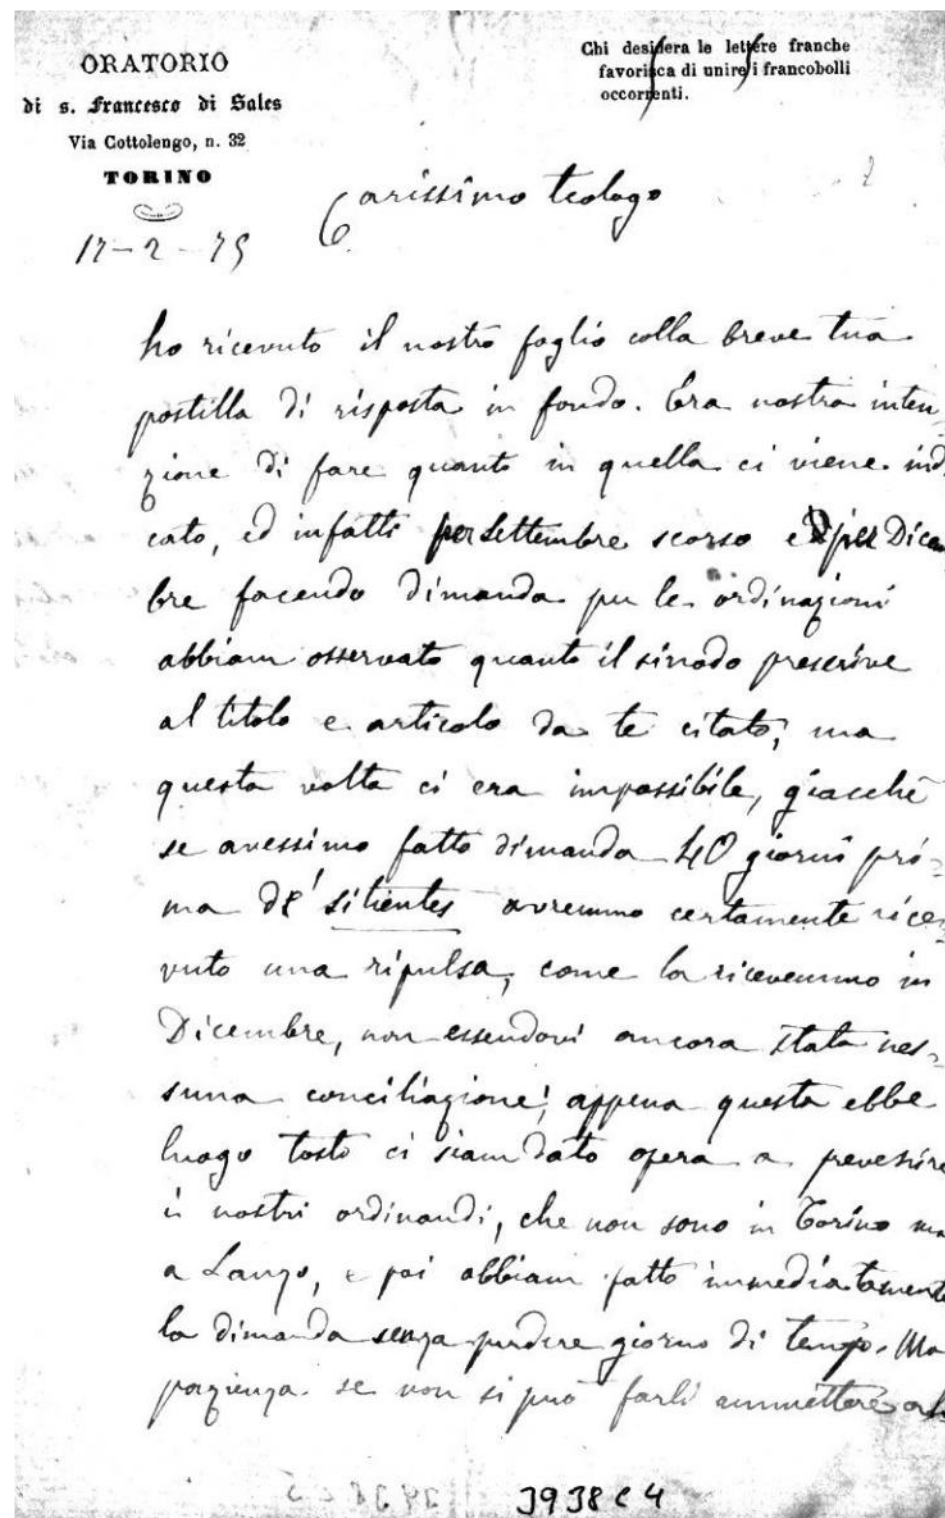 ORATORIO
di s. Francesco di Sales
Via Cottolengo, n. 32
TORINO
Chi desidera le lettere franche
favorisca di unire i francobolli
occorrenti.
17-2-75
Carissimo teologo
ho ricevuto il nostro foglio colla breve tua
postilla di risposta in fondo. Era nostra inten=
zione di fare quanto in quella ci viene indi
cato, ed infatti per Settembre scorso e per Dicem
bre facendo dimanda per le ordinazioni
abbiam osservato quanto il sinodo prescrive
al titolo e articolo da te citato; ma
questa volta ci era impossibile, giacchè
se avessimo fatto dimanda 40 giorni pri=
ma de' sitientes avremmo certamente rice=
vuto una ripulsa, come la ricevemmo in
Dicembre, non essendovi ancora stata nes=
suna conciliazione; appena questa ebbe
luogo tosto ci siam dato opera a prevenire
i nostri ordinandi, che non sono in Torino ma
a Lanzo, e poi abbiam fatto immediatamente
la dimanda senza perdere giorno di tempo. Ma
pazienza se non si può farli ammettere
3938 C 4